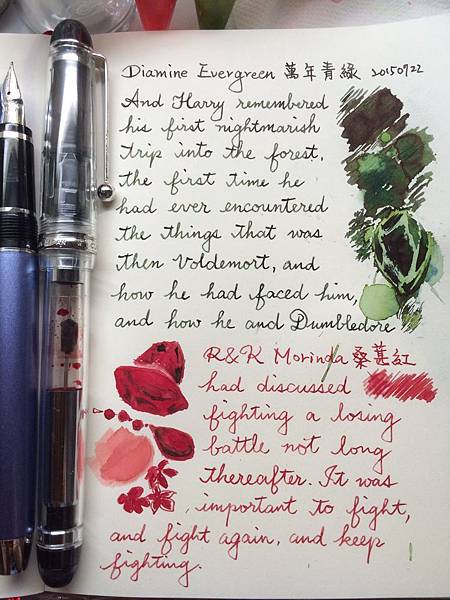 Diamine Evergreen 萬年青綠 20150722
And Harry remembered
his first nightmarish
trip into the forest,
the first time he
had ever encountered
the things that was
then Voldemort, and
how he had faced him,
and how he and Dumbledore
R&K Morinda 桑葚紅
had discussed
fighting a losing
battle not long
thereafter. It was
important to fight,
and fight again, and keep
fighting.